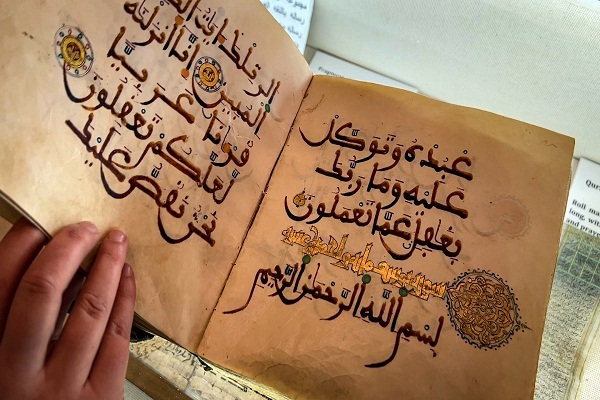 عبده وتوكل
عليه وما ربك
بغفل عما تعملون
سورة يوسف
بسم الله الرحمن الرحيم
الر تلك ايت
المبين انا انزلنه
قرءنا عربيا
لعلكم تعقلون
نحن نقص عليك
Roll
long,
and